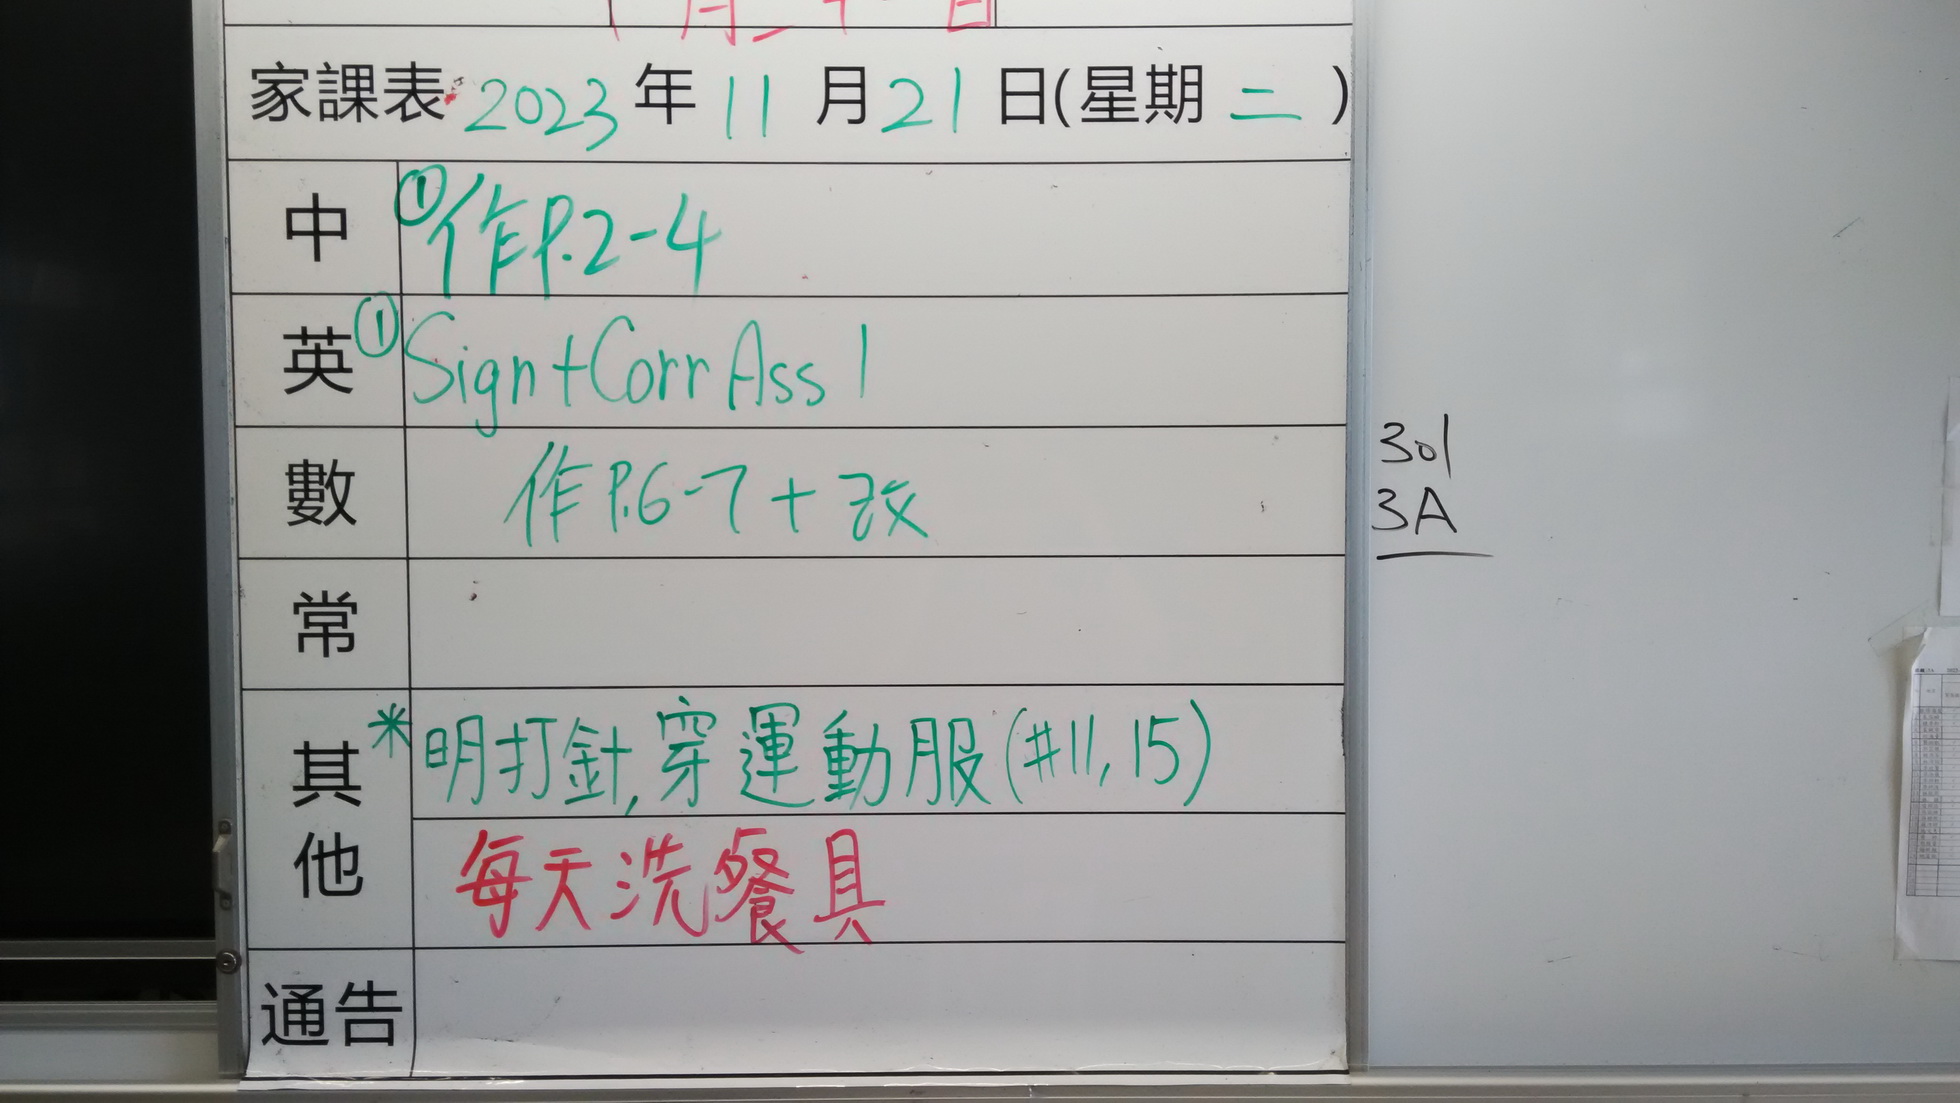 家課表 2023 年 11 月 21 日(星期 二 )
中 ①作P.2-4
英 ①Sign+Corr Ass 1
數 作P.6-7 + 改
常
其他 *明打針,穿運動服(#11,15)
每天洗餐具
通告
301
3A